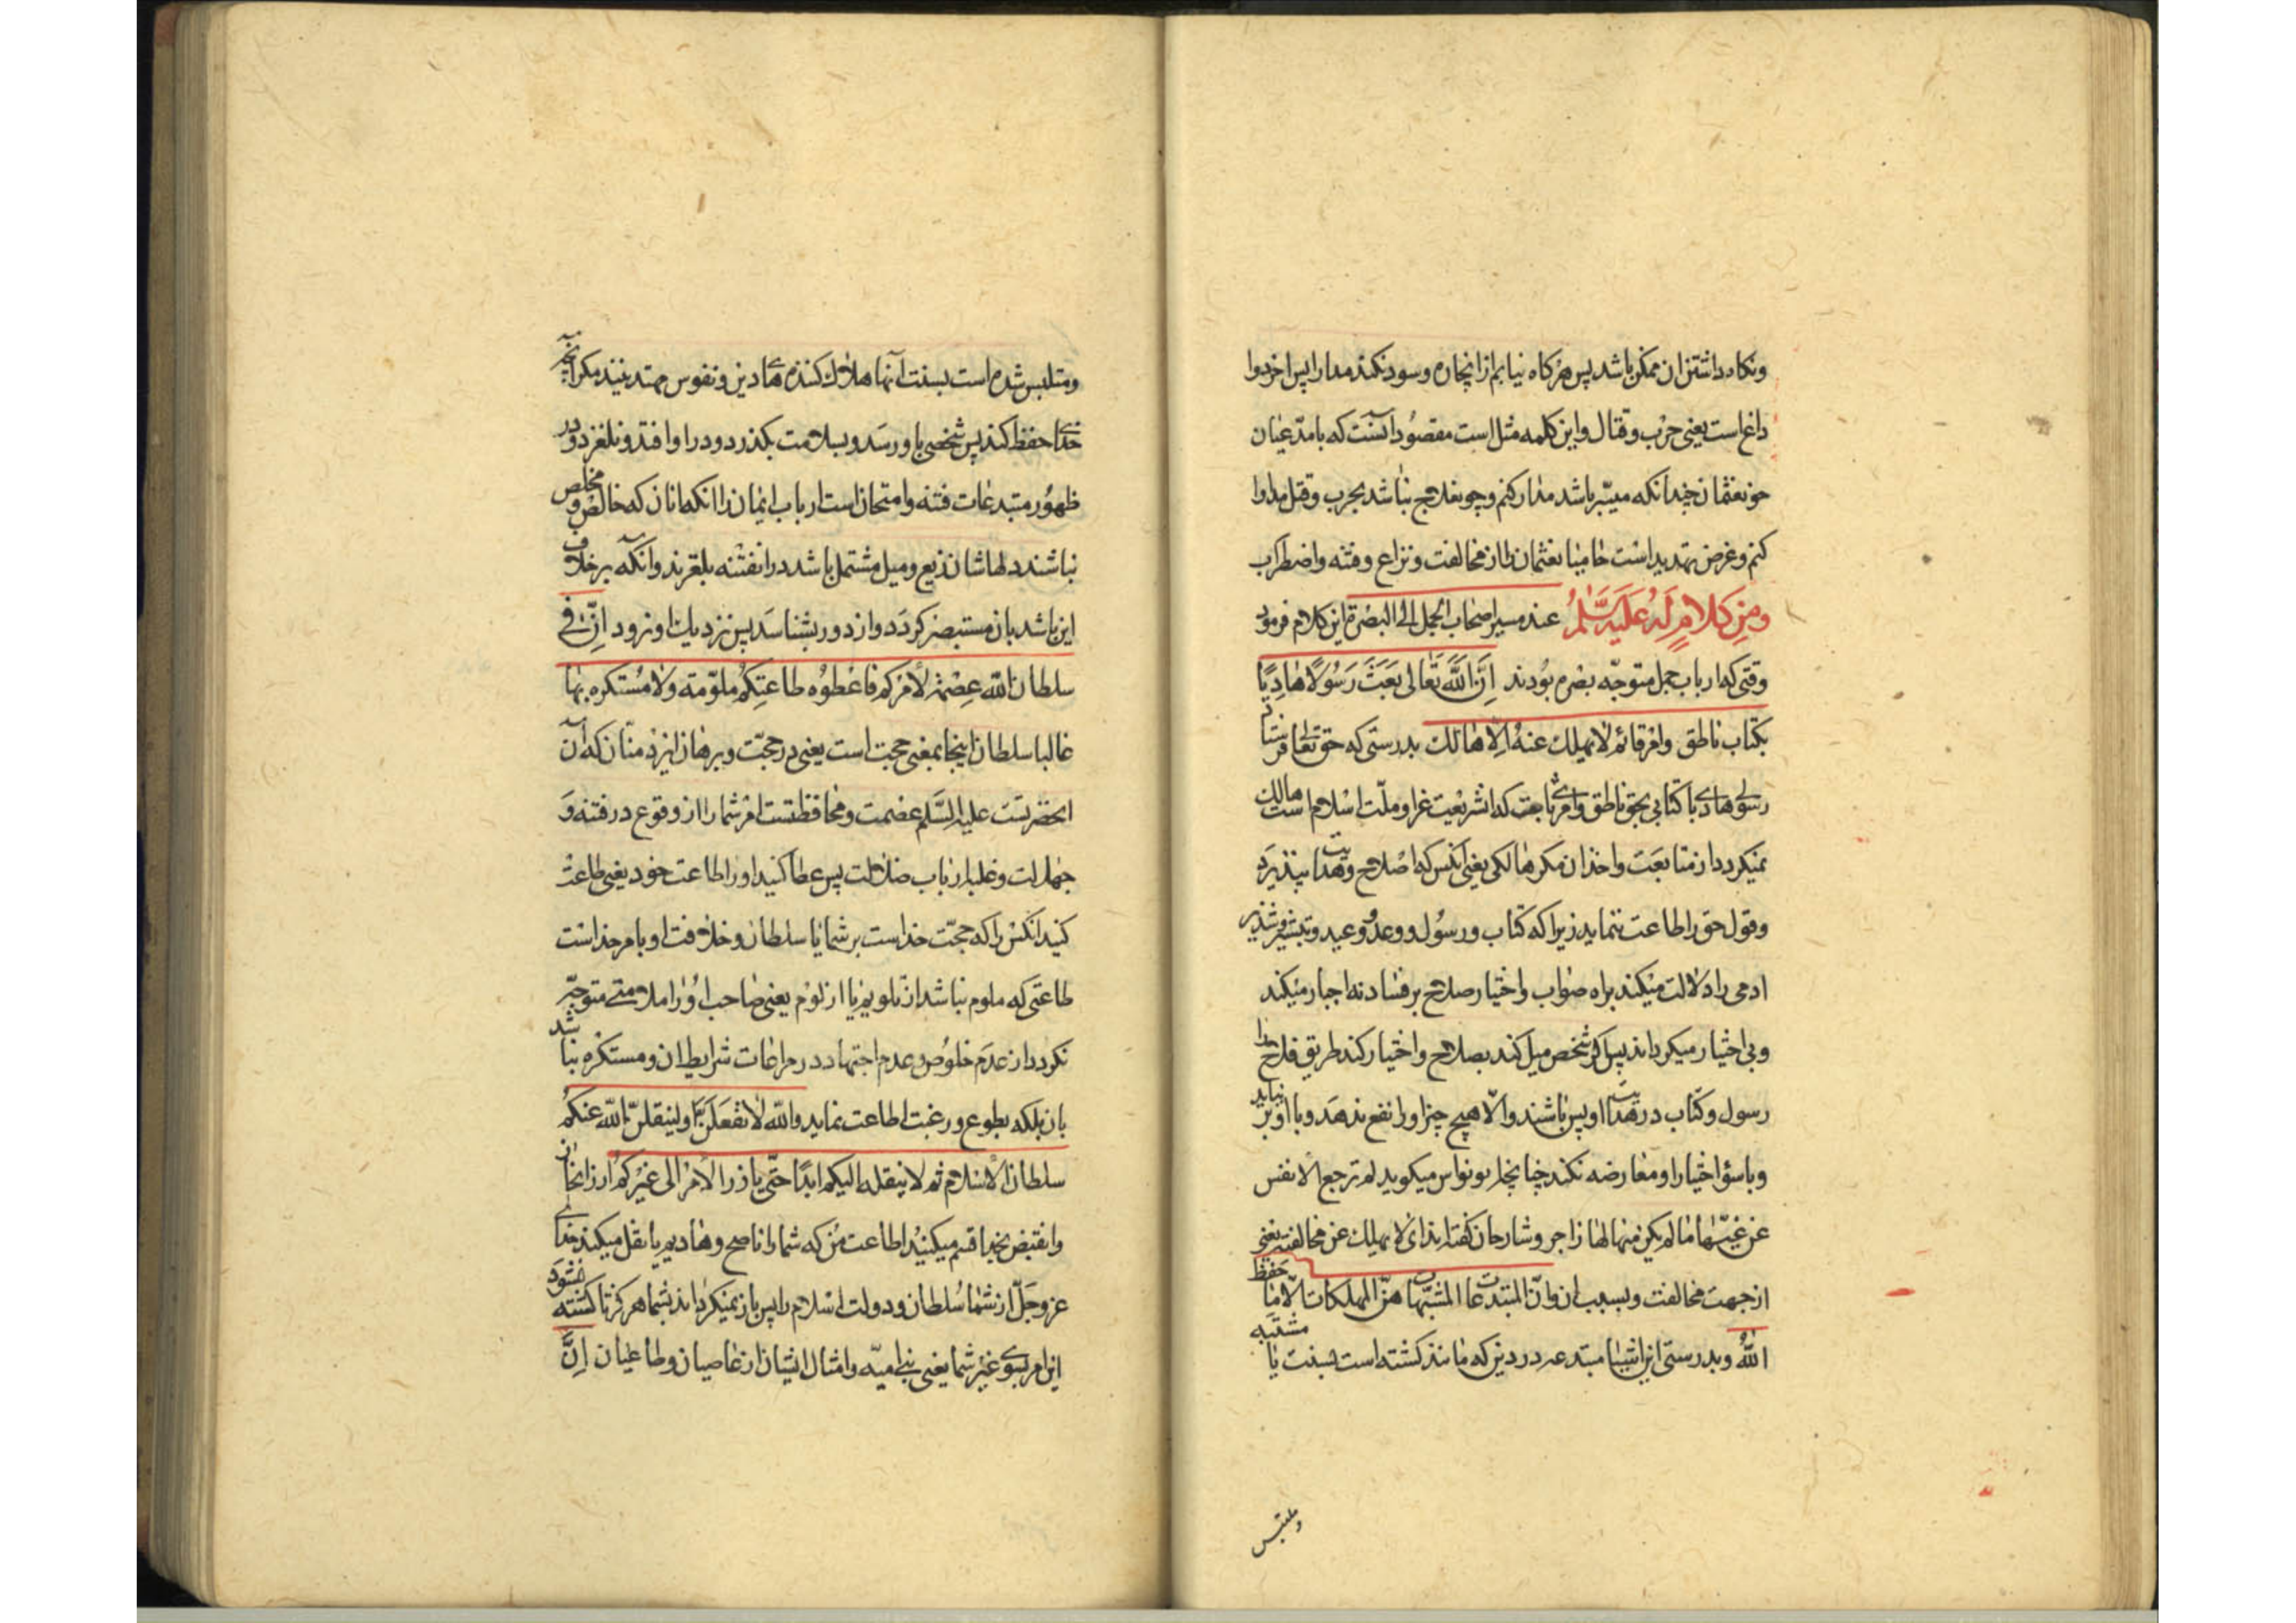 ونکاه داشتن ان ممکن باشد پس هر کاه نیابم از ان چاره و سود نکند مدارا پس اخر دوا
داغ است یعنی حرب و قتال و این کلمه مثل است مقصود آنست که با مدّعیان
خون عثمان چندانکه میسّر باشد مدارا کنم و چون علاج نباشد بحرب و قتل مداوا
کنم و غرض تهدید است حامیان عثمان را از مخالفت و نزاع و فتنه و اضطراب
ومن کلامٍ لَهُ عَلَیهِ السَّلمُ عند مسیر اصحاب الجمل الی البصرة این کلام فرمود
وقتی که ارباب جمل متوجّه بصره بودند اِنَّ اللَّهَ تَعالی بَعَثَ رَسُولًا هادِیًا
بکتاب ناطق وامر قائم لا یهلك عنهُ اِلّا هالك بدرستی که حق تعالی فرستاد
رسولی هادی با کتابی بحق ناطق وامری ثابت که ان شریعت غرا و ملّت اسلام است هالك
نمیکردد از متابعت واخذ ان مکر هالکی یعنی آنکس که اصلاح و هدایت نپذیرد
وقول حق را اطاعت ننماید زیرا که کتاب و رسول و وعد و وعید و تبشیر و تنذیر
ادمی را دلالت میکند براه صواب واختیار صلاح بر فساد نه اجبار میکند
وبی اختیار میکرداند پس اکر شخص میل کند بصلاح و اختیار کند طریق فلاح خدا
رسول و کتاب در هدایت او بس باشند والّا هیچ چیز او را نفع ندهد و با او برنیاید
وبا سؤ اختیار او معارضه نکند چنانچه ابو نواس میکوید لم ترجع الانفس
عن غیّها ما لم یکن منها لها زاجر و شارحان کفته‌اند ای لا یهلك عن مخالفته یعنی
از جهت مخالفت و بسبب ان وانّ المبتدعات المشبّهات هنّ المهلکات الّا ما حفظ
اللّهُ و بدرستی این اشیاء مبتدعه در دین که مانند کشته است بسنت یا مشتبه
وملتبس
ومتلبس شده است بسنت آنها هلاك کننده‌های دین و نفوس مهتدینند مکر انچه
خدای حفظ کند پس شخصی باو رسد و بسلامت بکذرد و در او افتد و نلغزد و در
ظهور مبتدعات فتنه و امتحان است ارباب ایمان را انکه انان که خالص و مخلص
نباشند دلهاشان بزیع و میل مشتمل باشد در ان فتنه بلغزند وانکه بر خلاف
این باشد بان مستبصر کردد و از دور بشناسد پس نزدیك او نرود اِنّ فی
سلطان اللّه عِصْمَةً لأمْرِکم فاعْطوُه طاعتِکُم غیر ملوّمة ولا مُستکره بها
غالبا سلطان اینجا بمعنی حجت است یعنی در حجّت و برهان ایزد منّان که آن
انحضرتست علیه السَّلم عصمت و محافظتست امر شما را از وقوع در فتنه و
جهالت وغلبه ارباب ضلالت پس عطا کنید او را طاعت خود یعنی طاعت
کنید انکس را که حجّت خداست بر شما یا سلطان و خلافت او بامر خداست
طاعتی که ملوم نباشد از تلویم یا از لوم یعنی صاحب او را ملامتی متوجّه
نکردد از عدم خلوص و عدم اجتهاد در مراعات شرایط ان و مستکره نباشد
بان بلکه بطوع و رغبت اطاعت نماید واللّه لَتفعَلُنّ او لینقلنّ اللّه عنکُم
سلطان الاسلام ثم لا ینقله الیکم ابدًا حتّی یأرز الأمْرُ الی غیْرِکُم ارز انحاز
وانقبض بخدا قسم میکنید اطاعت من که شما را ناصح و هادیم یا نقل میکند خدای
عز وجَلّ از شما سُلطان و دولت اسلام را پس باز نمیکرداند بشما هرکز تا کشته نشود
این امر بسوی غیر شما یعنی بنی امیّه وامثال ایشان از عاصیان و طاغیان اِنَّ